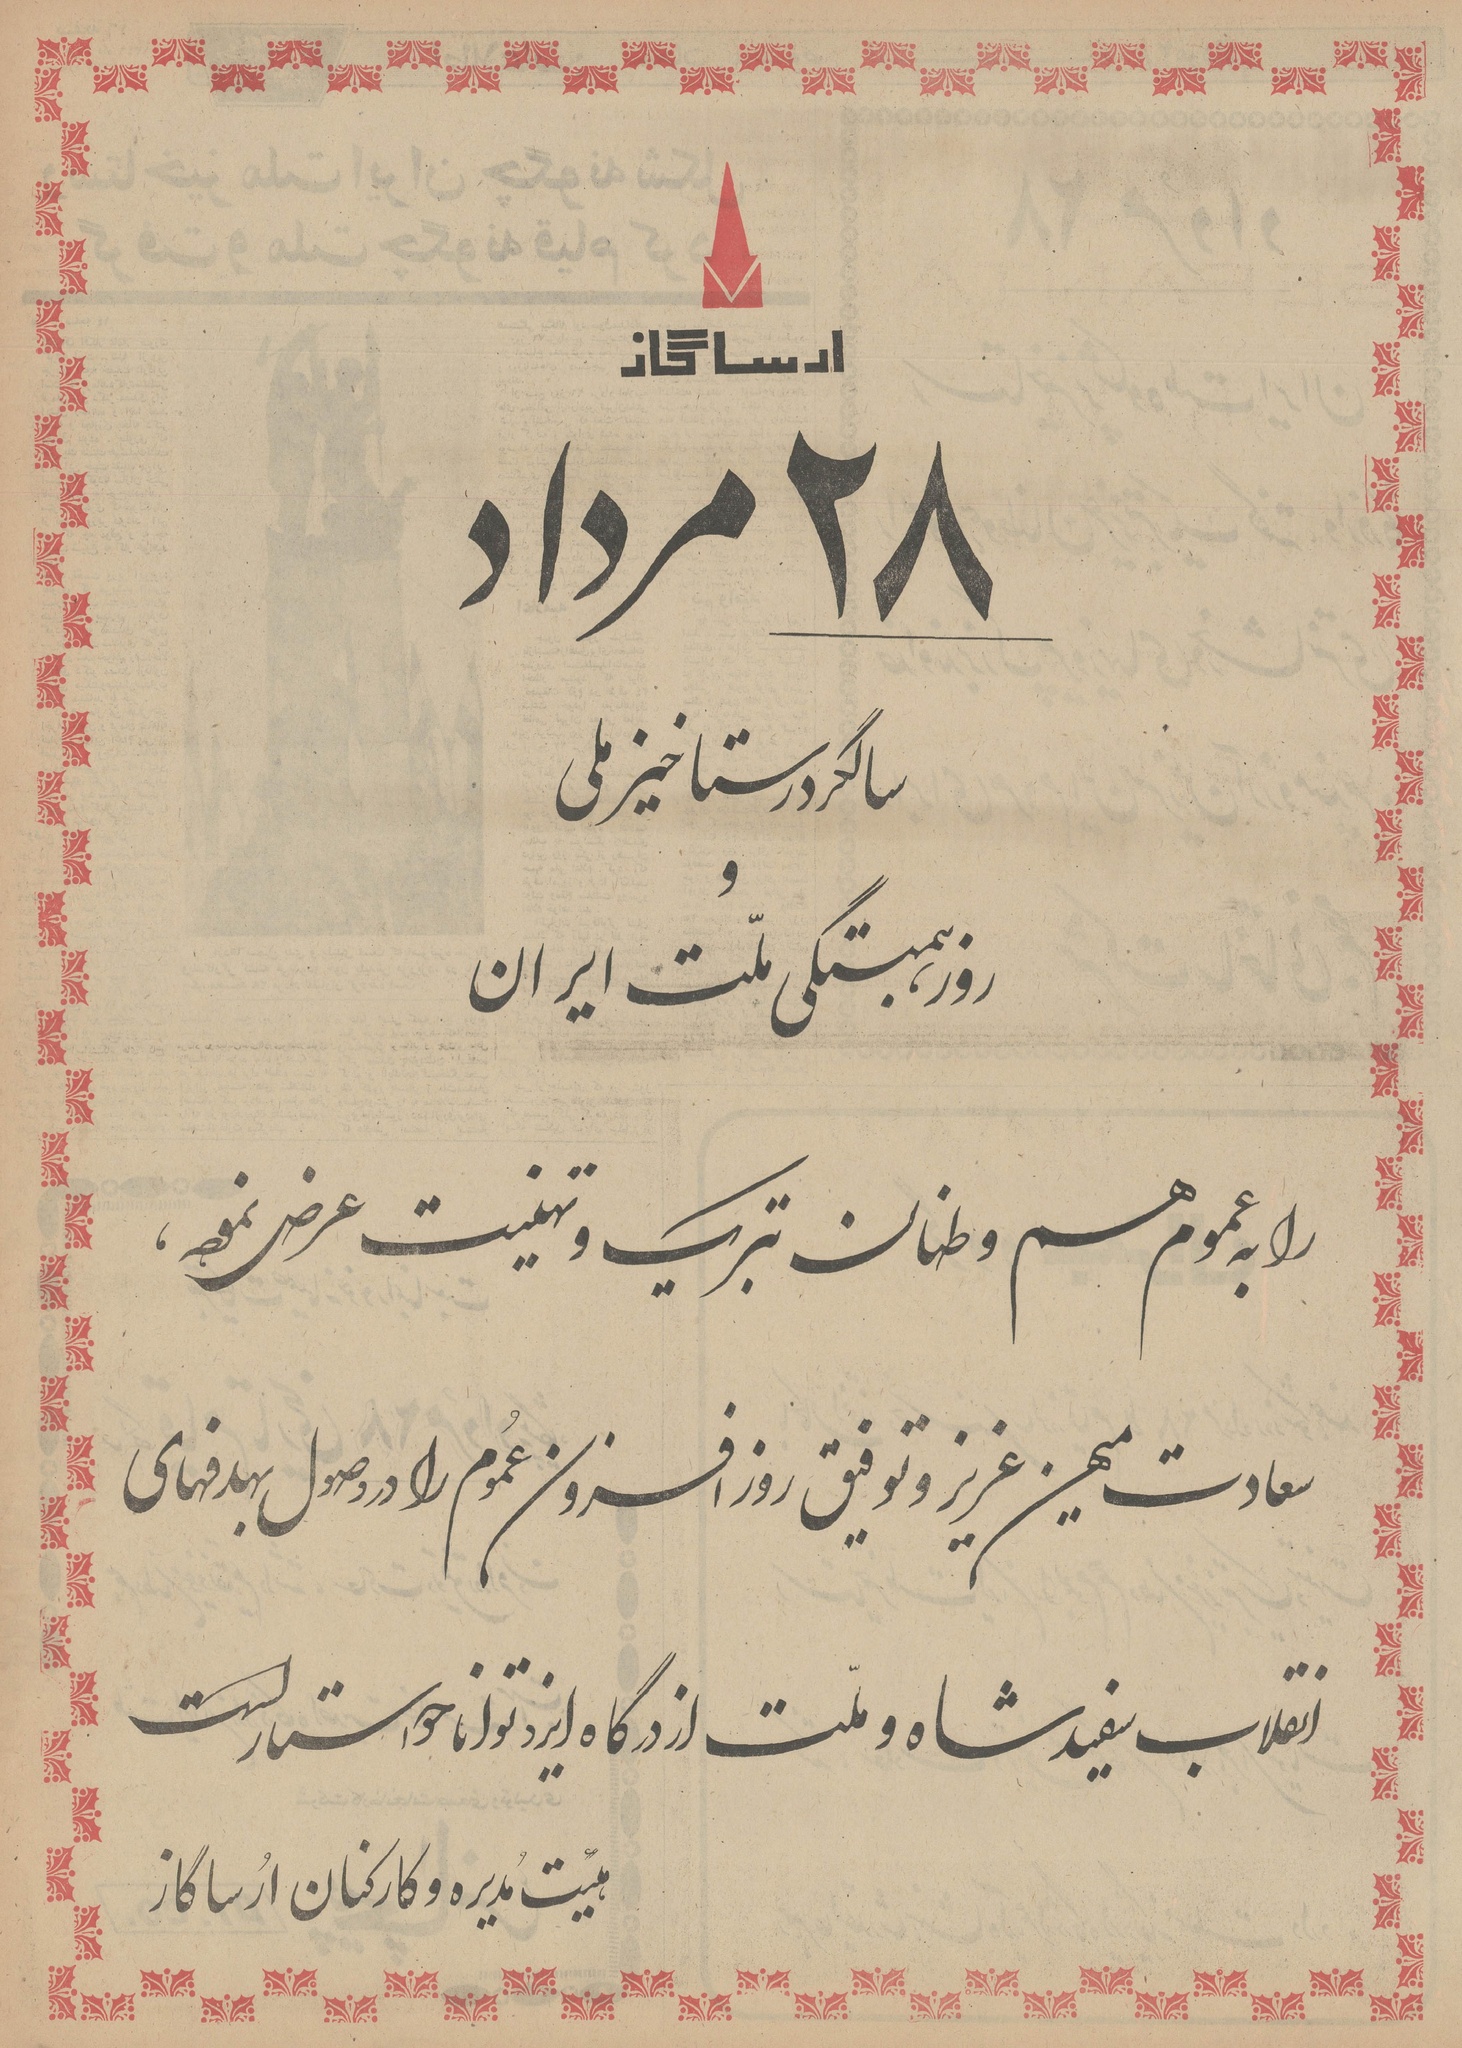 ارساگاز
۲۸ مرداد
سالگرد رستاخیز ملی
و
روز همبستگی ملّت ایران
را به عموم هم وطنان تبریک و تهنیت عرض نموده،
سعادت میهن عزیز و توفیق روزافزون عُموم را در وصول بهدفهای
انقلاب سفید شاه و ملّت از درگاه ایزد توانا خواستار است
هیئت مُدیره و کارکنان ارُساگاز